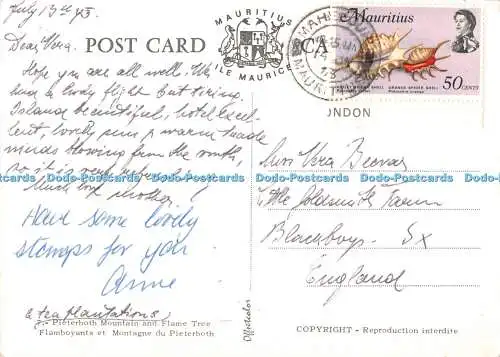 July 13th 73
MAURITIUS
ILE MAURICE
POST CARD
CA
Mauritius
50 CENTS
LONDON
Dear Vera.
Hope you are all well. We
had a lovely flight but tiring.
Island beautiful, hotel excel-
lent, lovely sun & warm trade
winds blowing from the south,
so it is very
Much love mother.
Have some lovely
stamps for you
Anne
& tea plantations
Pieterboth Mountain and Flame Tree
Flamboyants et Montagne du Pieterboth
Offsetcolor
Miss Vera
Little Goldsmith Farm
Blackboys. Sx
England
COPYRIGHT - Reproduction interdite
Dodo-Postcards Dodo-Postcards Dodo-Postcards Dodo-Postcards Dodo-Postcards Dodo-Postcards